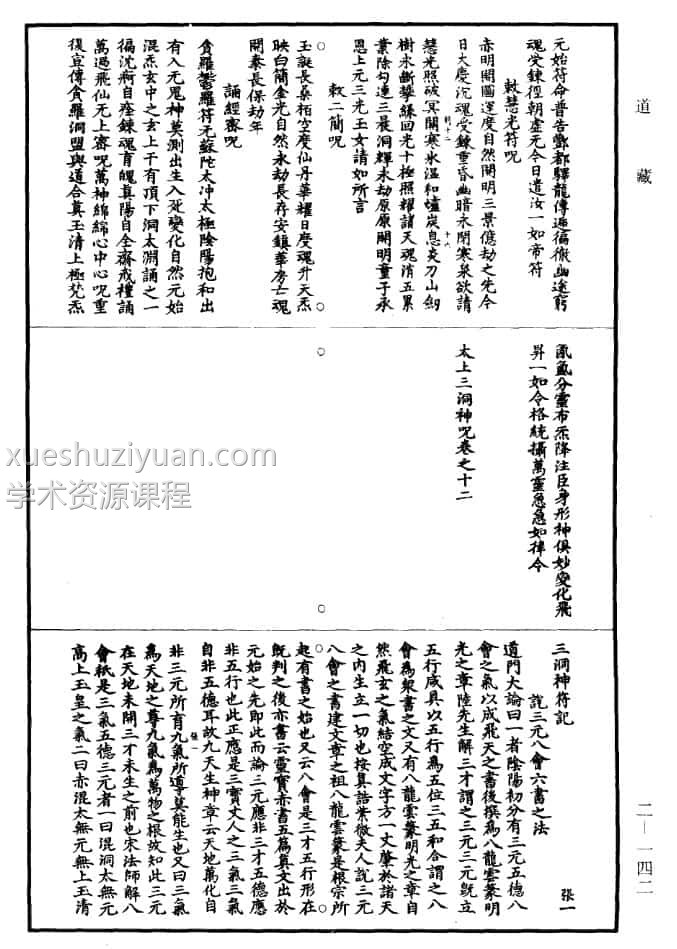 道藏
元始符命普告酆都驛龍傳遞徧衞幽途窮
魂受鍊徑朝虚无今日遣汝一如帝符
敕慧光符呪
赤明開圖運度自然開明三景億劫之先今
日大慶沉魂受鍊重昏幽暗永閉寒泉欲請
慧光照破冥關寒氷温和爐炭息炎刀山劒
樹永斷摯緣回光十極照耀諸天魂消五累
業除勾連三晨洞輝永劫原原開明童子承
恩上元三光玉女請如所言
敕二簡呪
玉誕長桑柏空度仙丹華耀日慶魂升天炁
映白簡金光自然永劫長存安鎮華房亡魂
開泰長保劫年
誦經密呪
貪羅鬱羅符无蘇陀太冲太極陰陽抱和出
有入无鬼神莫測出生入死變化自然元始
混炁玄中之玄上干有頂下洞太淵誦之一
徧沈痾自痊鍊魂育魄真陽自全齋戒禮誦
萬過飛仙无上密呪萬神綿綿心中心呪重
復宣傳貪羅洞盟與道合真玉清上極梵炁
氤氲分靈布炁降注臣身形神俱妙變化飛
昇一如令格統攝萬靈急急如律令
太上三洞神呪卷之十二
三洞神符記
張一
説三元八會六書之法
道門大論曰一者陰陽初分有三元五德八
會之氣以成飛天之書後撰爲八龍雲篆明
光之章陸先生解三才謂之三元三元旣立
五行咸具以五行爲五位三五和合謂之八
會爲衆書之文又有八龍雲篆明光之章自
然飛玄之氣結空成文字方一丈肇於諸天
之内生立一切也按真誥紫微夫人説三元
八會之書建文章之祖八龍雲篆是根宗所
起有書之始也又云八會是三才五行形在
旣判之後亦書云靈寶赤書五篇真文出於
元始之先即此而論三元應非三才五德應
非五行也此正應是三寶丈人之三氣三氣
自非五德耳故九天生神章云天地萬化自
非三元所育九氣所導莫能生也又曰三氣
爲天地之尊九氣爲萬物之根故知此三元
在天地未開三才未生之前也宋法師解八
會祇是三氣五德三元者一曰混洞太無元
高上玉皇之氣二曰赤混太無元無上玉清
二—一四二
xueshuziyuan.com
学术资源课程